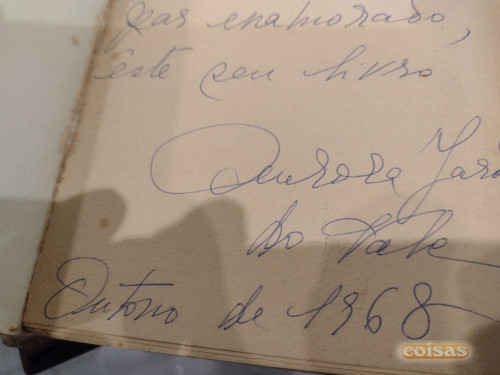 par enamorado,
êste seu livro
Aurora Jard
do Vale
Outono de 1968
coisas